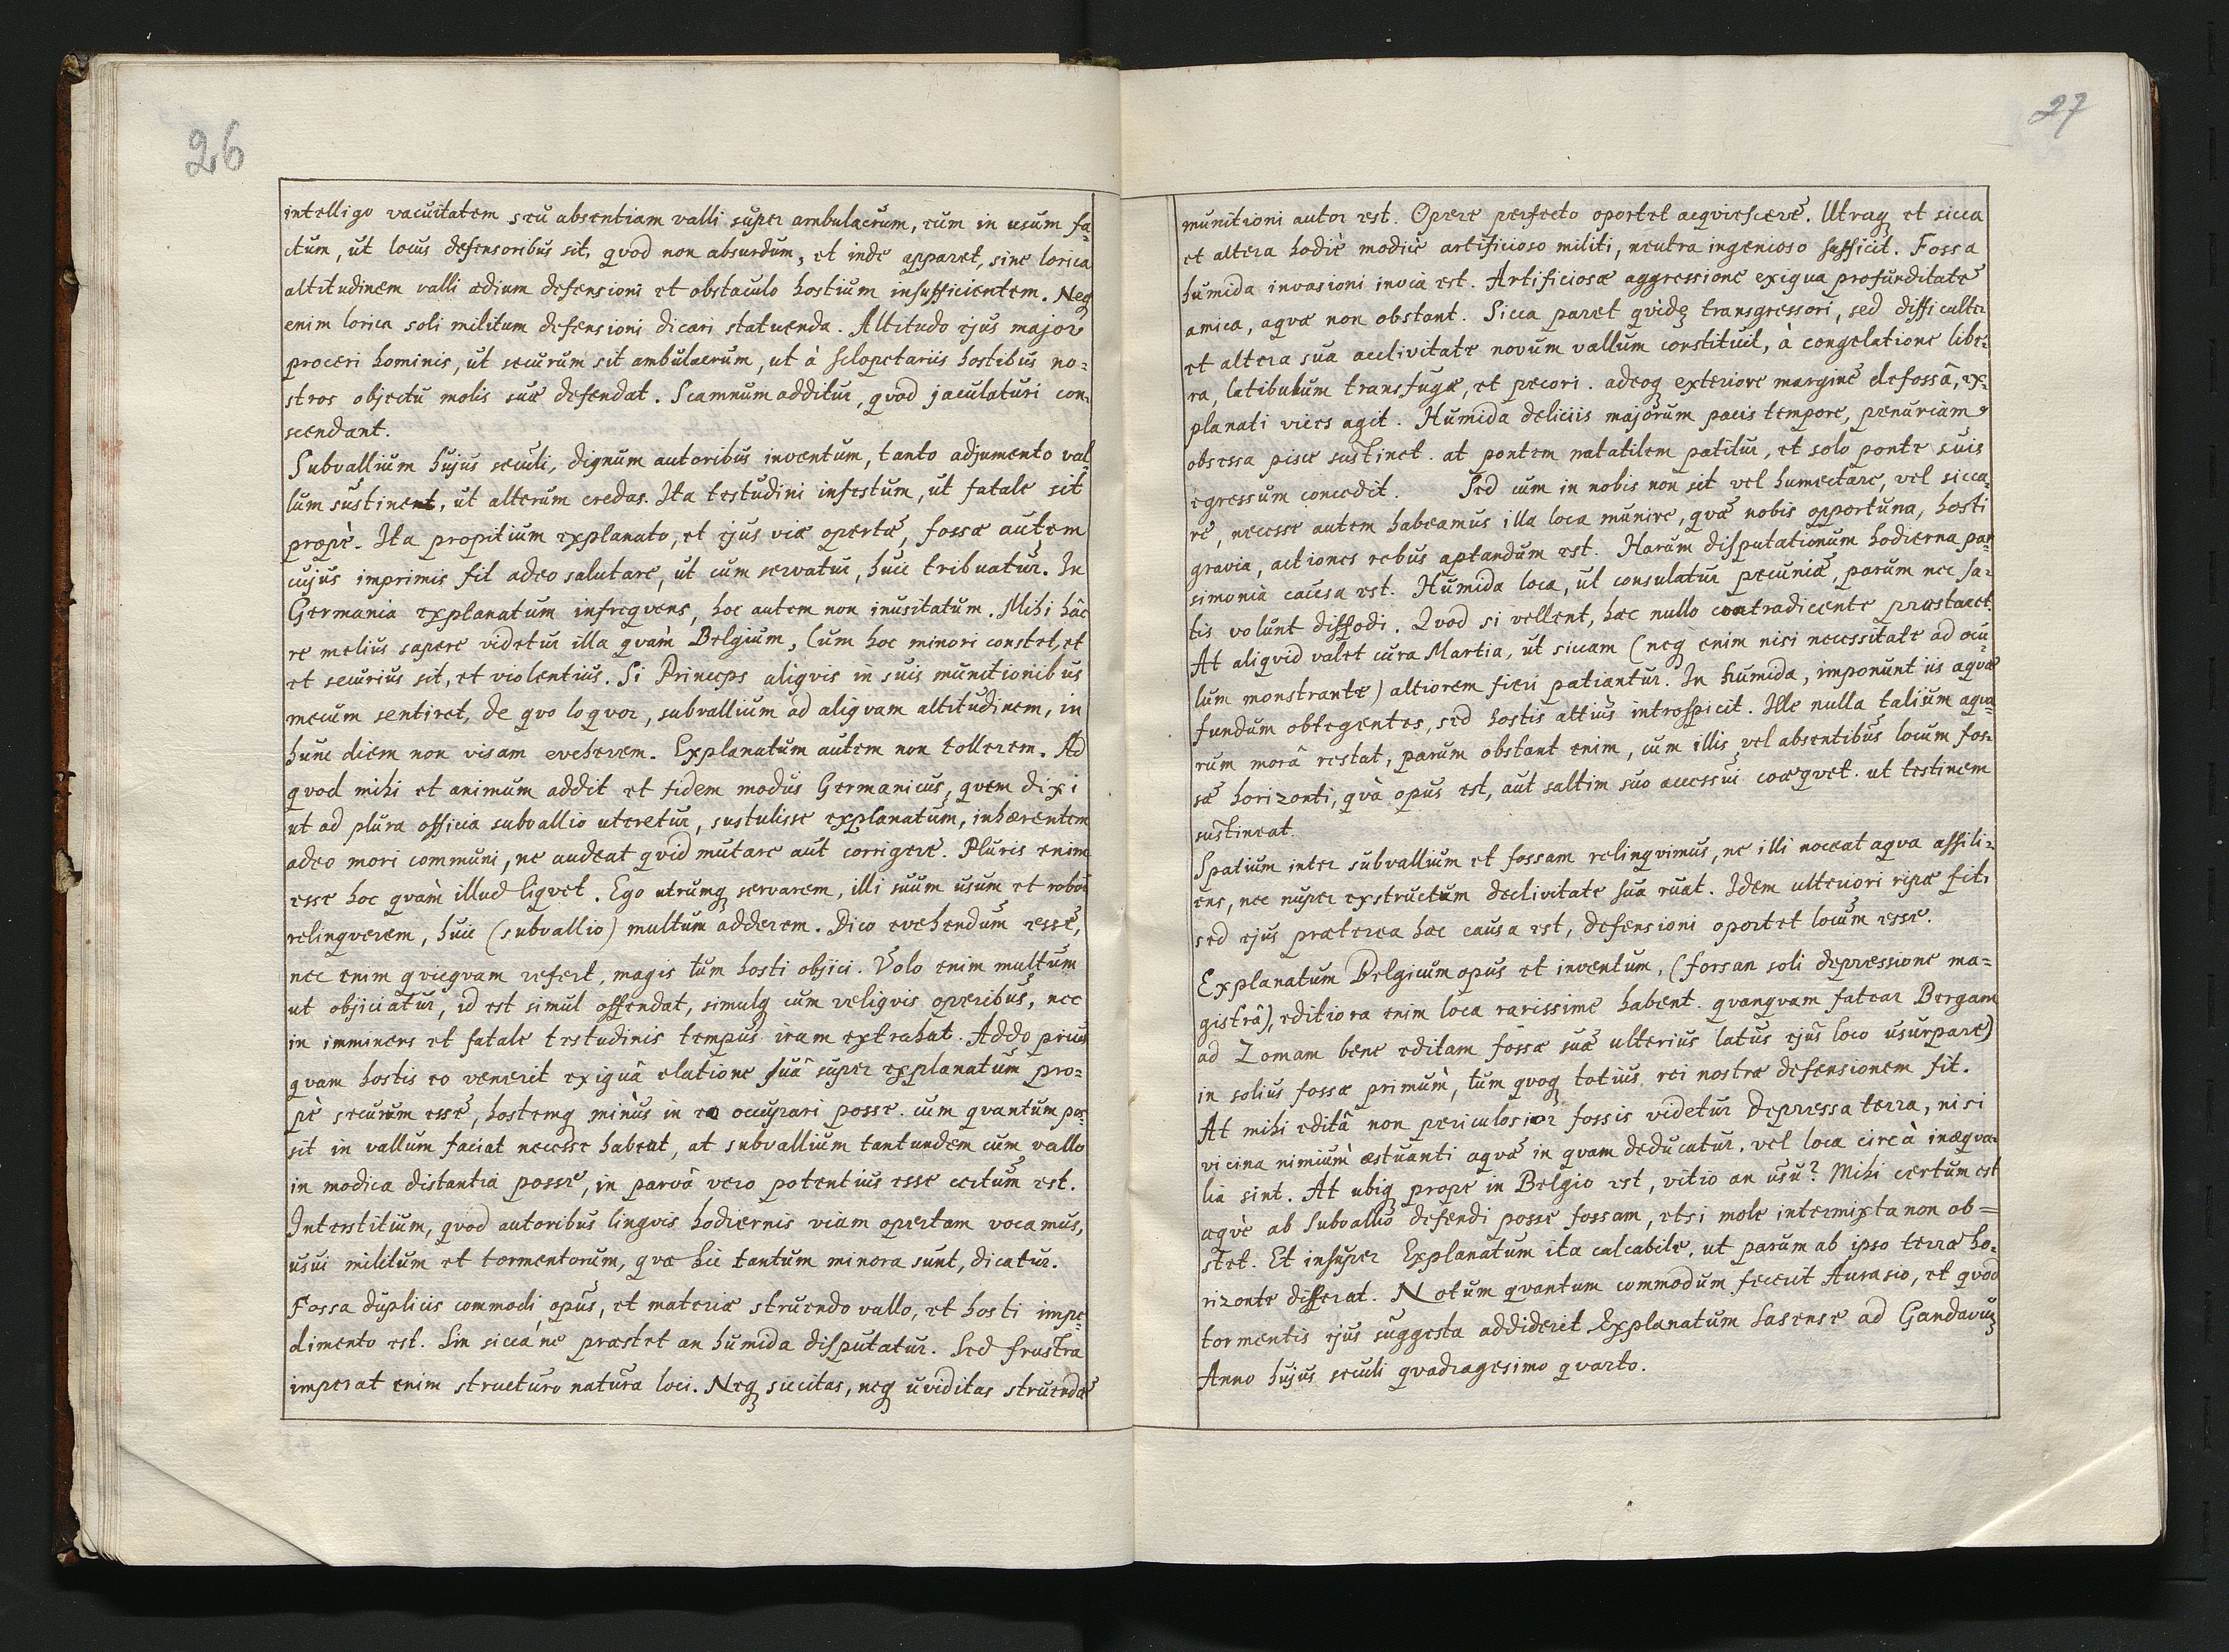 26
intelligo vacuitatem seu absentiam valli super ambulacrum, cum in usum fa-
ctum, ut locus defensoribus sit, qvod non absurdum, et inde apparet, sine lorica
altitudinem valli ædium defensioni et obstaculo hostium insufficientem. Neq
enim lorica soli militum defensioni dicari statuenda. Altitudo ejus major
proceri hominis, ut securum sit ambulacrum, ut à sclopetariis hostibus no-
stros objectu molis suæ defendat. Scamnum additur, qvod jaculaturi con-
scendant.
Subvallium hujus seculi, dignum autoribus inventum, tanto adjumento val
lum sustinent, ut alterum credas. Ita testudini infestum, ut fatale sit
propè. Ita propitium explanato, et ejus viæ opertæ, fossæ autem
cujus imprimis fit adeo salutare, ut cum servatur, huic tribuatur. In
Germania explanatum infreqvens, hoc autem non inusitatum. Mihi hâc
re melius sapere videtur illa qvàm Belgium, Cum hoc minori constet, et
et securius sit, et violentius. Si Princeps aliqvis in suis munitionibus
mecum sentiret, de qvo loqvor, subvallium ad aliqvam altitudinem, in
hunc diem non visam eveherem. Explanatum autem non tollerem. Ad
qvod mihi et animum addit et fidem modus Germanicus, qvem dixi
ut ad plura officia subvallio uteretur, sustulisse explanatum, inhærentem
adeo mori communi, ne audeat qvid mutare aut corrigere. Pluris enim
esse hoc qvàm illud liqvet. Ego utrumq servarem, illi suum usum et robor
relinqverem, huic (subvallio) multum adderem. Dico evehendum esse,
nec enim qvicqvam refert, magis tum hosti objici. Volo enim multum
ut objiciatur, id est simul offendat, simulq cum reliqvis operibus, nec
in imminens et fatale testudinis tempus iram extrahat. Addo prius
qvam hostis eo venerit exiguâ elatione suâ super explanatum pro-
pè securum esse, hostemq minùs in eo occupari posse. cum qvantum pos-
sit in vallum faciat necesse habeat, at subvallium tantundem cum vallo
in modica distantia posse, in parvà vero potentius esse certum est.
Interstitium, qvod autoribus lingvis hodiernis viam opertam vocamus,
usui militum et tormentorum, qvæ hic tantum minora sunt, dicatur.
Fossa duplicis commodi opus, et materiæ struendo vallo, et hosti impe-
dimento est. Sin sicca'ne præstet an humida disputatur. Sed frustra
imperat enim structuro natura loci. Neq siccitas, neq uviditas struendæ
27
munitioni autor est. Opere perfecto oportet acqviescere. Utraq et sicca
et altera hodiè modicè artificioso militi, neutra ingenioso sufficit. Fossa
humida invasioni invia est. Artificiosæ aggressione exigua profunditate
amica, aqvæ non obstant. Sicca paret qvidẽ transgressori, sed difficulter
et altera sua acclivitate novum vallum constituit, à congelatione libe-
ra, latibulum transfugæ, et pecori. adeoq exteriore margine defossâ, ex-
planati vices agit. Humida deliciis majorum pacis tempore, penuriam
obsessa pisce sustinet. at pontem natatilem patitur, et solo ponte suis
egressum concedit. Sed cum in nobis non sit vel humectare, vel sicca-
re, necesse autem habeamus illa loca munire, qvæ nobis opportuna, hosti
gravia, actiones rebus aptandum est. Harum disputationum hodierna par
simonia causa est. Humida loca, ut consulatur pecuniæ, parum nec sa-
tis volunt diffodi. Qvod si vellent, hæc nullo contradicente præstaret.
At aliqvid valet cura Martia, ut siccam (neq enim nisi necessitate ad ocu-
lum monstrante) altiorem fieri patiantur. In humida, imponunt iis aqvæ
fundum obtegentes, sed hostis altius introspicit. Ille nulla talium aqva-
rum morâ restat, parum obstant enim, cum illis vel absentibus locum fos-
sæ horizonti, qvà opus est, aut saltim suo accessui coæqvet. ut testinem
sustineat.
Spatium inter subvallium et fossam relinqvimus, ne illi noceat aqva assili-
ens, nec nuper exstructum declivitate sua ruat. Idem ulteriori ripæ fit,
sed ejus præterea hæc causa est, defensioni oportet locum esse.
Explanatum Belgicum opus et inventum, (forsan soli depressione ma-
gistrâ), editiora enim loca rarissime habent. qvanqvam fatear Bergam
ad Zomam bene editam fossæ suæ ulterius latus ejus loco usurpare)
in solius fossæ primùm, tum qvoq totius rei nostræ defensionem fit.
At mihi editâ non periculosior fossis videtur depressa terra, nisi
vicina nimiùm æstuanti aqvæ in qvam deducatur, vel loca circà inæqva-
lia sint. At ubiq prope in Belgio est, vitio an usu? Mihi certum est
aqvè ab subvallio defendi posse fossam, etsi mole intermixta non ob-
stet. Et insuper Explanatum ita calcabile, ut parum ab ipso terræ ho-
rizonte differat. Notum qvantum commodum fecerit Aurasio, et qvod
tormentis ejus suggesta addiderit Explanatum Sasense ad Gandavũ
Anno hujus seculi qvadragesimo qvarto.